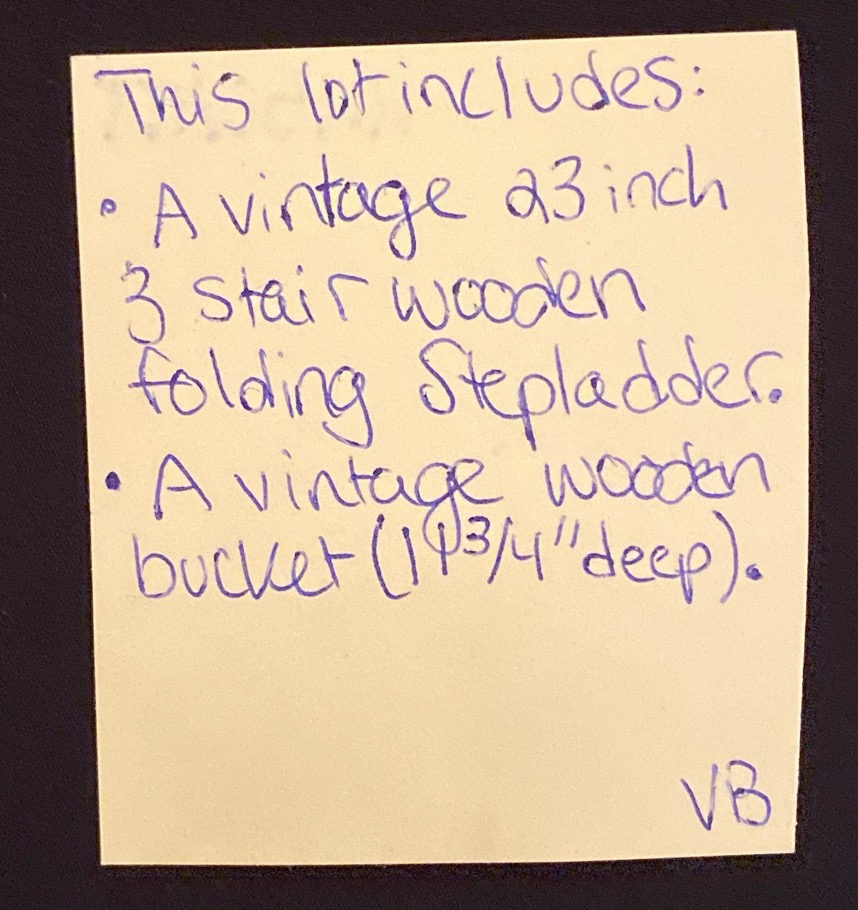 This lot includes:
• A vintage 23 inch
3 stair wooden
folding Stepladder.
• A vintage wooden
bucket (11 3/4" deep).
VB